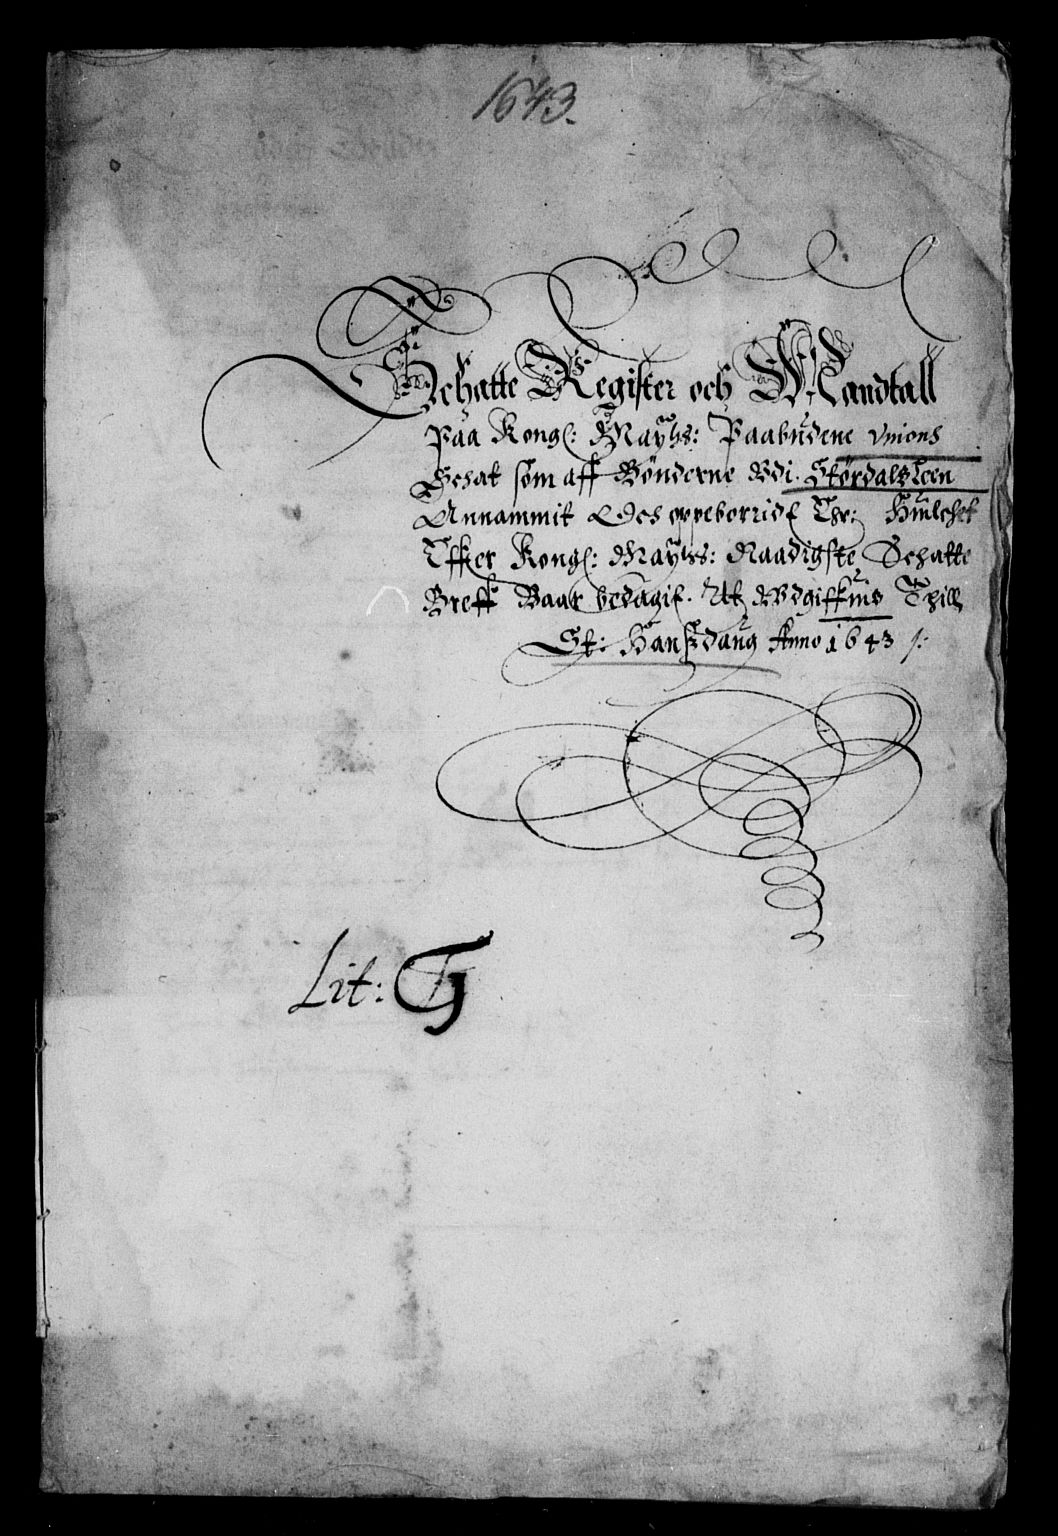 1643.
Schatte Register och Mandtall
Paa Kong: Maytts: Paabudene Unions
Schat som aff Bønderne Udi Størdals Leen
Annammit och oppeborrid
Effter Kong: Maytts: Naadigste Schatte
Breff At Udgiffuis Thill
St: Hansdaug Anno 1643
Lit: G